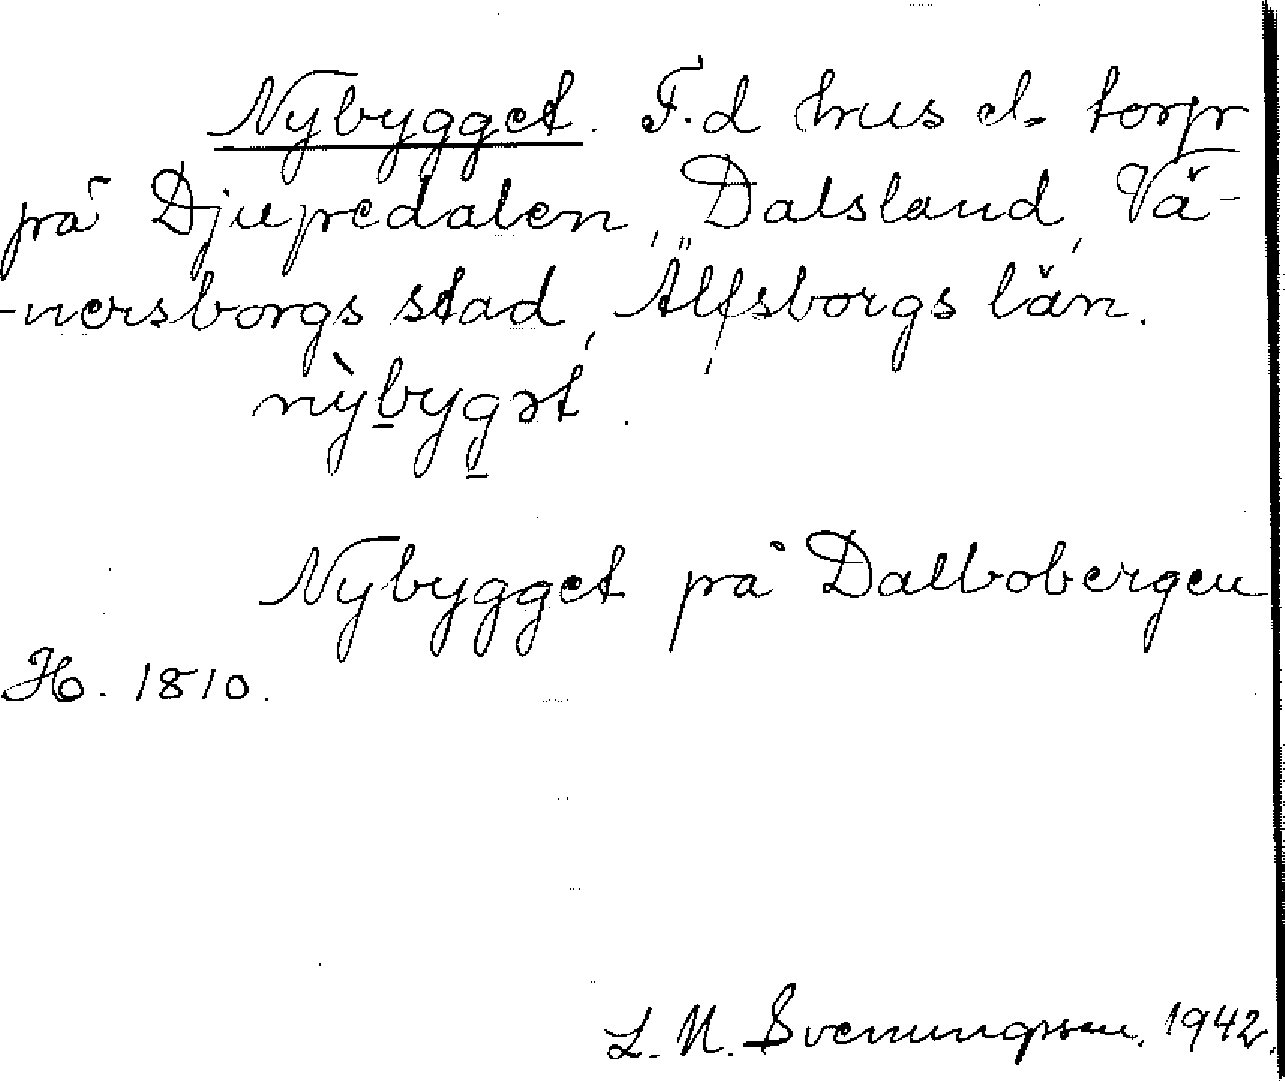 Nybygget. F.d hus el. torp
på Djupedalen, Dalsland, Vä-
-nersborgs stad, Älfsborgs län.
nỳbygət.
Nybygget på Dalbobergen
H. 1810.
L. M. Svenungsson. 1942.